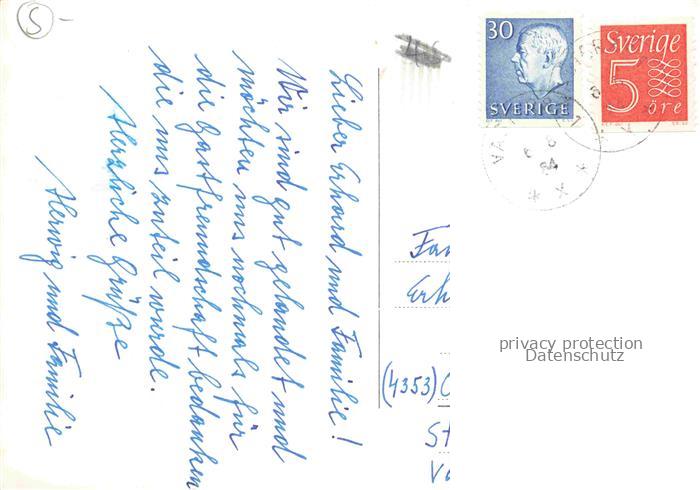 S-
Lieber Erhard und Familie!
Wir sind gut gelandet und
möchten uns nochmals für
die Gastfreundschaft bedanken
die uns zuteil wurde.
Herzliche Grüße
Herwig und Familie
30
SVERIGE
Sverige
5
öre
Fam
Erh
(4353)
St
privacy protection
Datenschutz